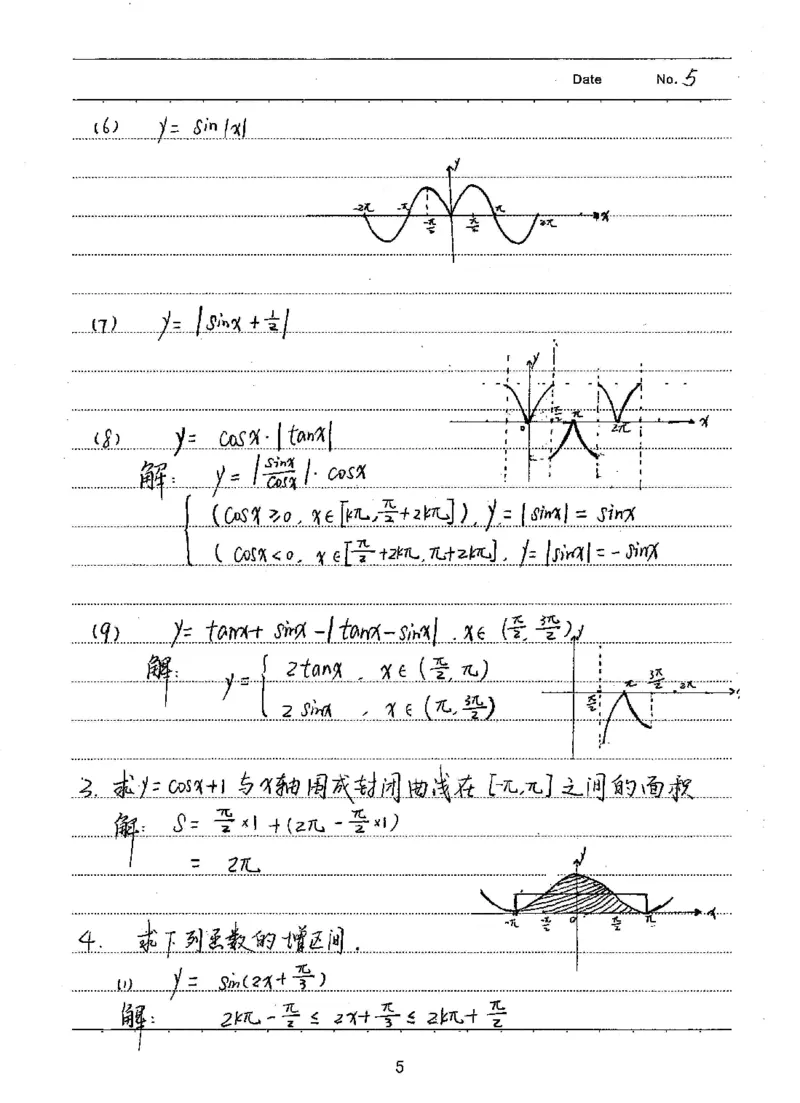 Date No. 5
(6) y = sin|x|
y
-2π -π -π/2 π/2 π 2π x
(7) y = |sinx + 1/2|
y
0 π/2 π 2π x
(8) y = cosx·|tanx|
解: y = |sinx/cosx|·cosx
(cosx ≥ 0, x∈[kπ, π/2+2kπ]), y = |sinx| = sinx
(cosx < 0, x∈[π/2+2kπ, π+2kπ], y = |sinx| = -sinx
(9) y = tanx + sinx - |tanx - sinx|, x∈(π/2, 3π/2)
解: y = { 2tanx, x∈(π/2, π)
2sinx, x∈(π, 3π/2)
y
π/2 π 3π/2 2π
3. 求y = cosx+1 与x轴围成封闭曲线在[-π,π]之间的面积
解: S = π/2×1 + (2π - π/2×1)
= 2π
y
-π -π/2 0 π/2 π x
4. 求下列函数的增区间.
(1) y = sin(2x + π/3)
解: 2kπ - π/2 ≤ 2x + π/3 ≤ 2kπ + π/2
5